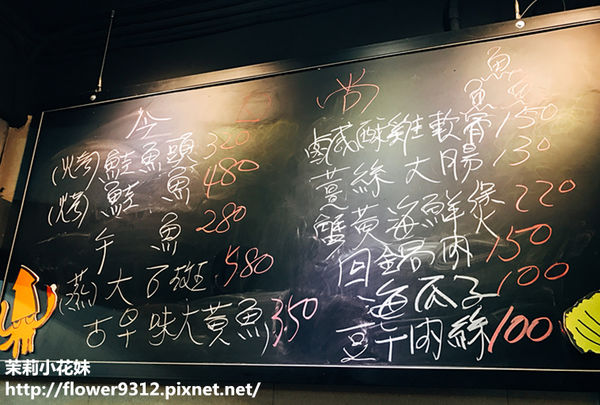 今日尚鱻
(烤)鮭魚頭320
(烤)鮭魚480
午魚280
(蒸)大石斑580
古早味大黃魚350
鹹酥雞軟骨150
薑絲大腸130
蟹黃海鮮煲220
回鍋肉150
海瓜子100
豆干肉絲100
茉莉小花妹
http://flower9312.pixnet.net/